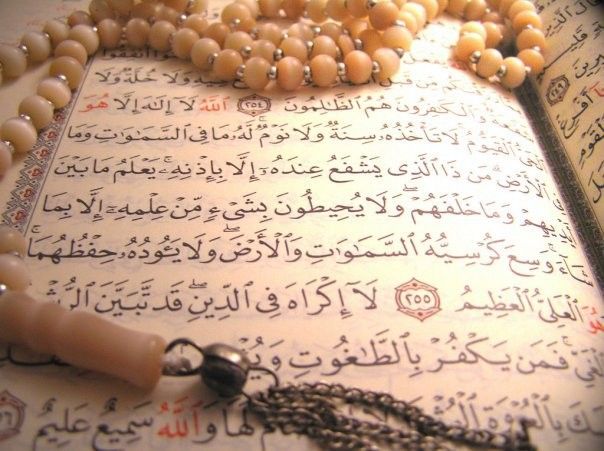 أَنفِقُوا
وَلَا خُلَّةٌ وَلَا
وَٱلْكَٰفِرُونَ هُمُ ٱلظَّٰلِمُونَ ٢٥٤ ٱللَّهُ لَآ إِلَٰهَ إِلَّا هُوَ
ٱلْحَىُّ ٱلْقَيُّومُ لَا تَأْخُذُهُۥ سِنَةٌ وَلَا نَوْمٌ لَّهُۥ مَا فِى ٱلسَّمَٰوَٰتِ وَمَا
ٱلْأَرْضِ مَن ذَا ٱلَّذِى يَشْفَعُ عِندَهُۥٓ إِلَّا بِإِذْنِهِۦ يَعْلَمُ مَا بَيْنَ
أَيْدِيهِمْ وَمَا خَلْفَهُمْ وَلَا يُحِيطُونَ بِشَىْءٍ مِّنْ عِلْمِهِۦٓ إِلَّا بِمَا
شَآءَ وَسِعَ كُرْسِيُّهُ ٱلسَّمَٰوَٰتِ وَٱلْأَرْضَ وَلَا يَـُٔودُهُۥ حِفْظُهُمَا
وَهُوَ ٱلْعَلِىُّ ٱلْعَظِيمُ ٢٥٥ لَآ إِكْرَاهَ فِى ٱلدِّينِ قَد تَّبَيَّنَ ٱلرُّشْدُ
ٱلْغَىِّ فَمَن يَكْفُرْ بِٱلطَّٰغُوتِ
بِٱلْعُرْوَةِ لَهَا وَٱللَّهُ سَمِيعٌ عَلِيمٌ